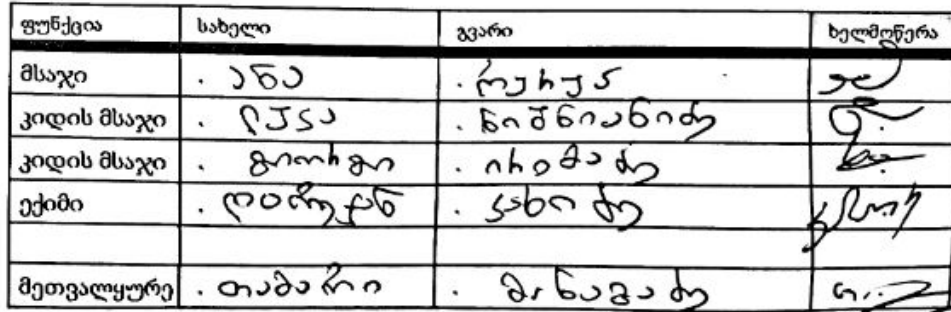 ფუნქცია სახელი გვარი ხელმოწერა
მსაჯი ანა
კიდის მსაჯი ლუკა ნიშნიანიძე
კიდის მსაჯი გიორგი ირემაძე
ექიმი კახიძე
მეთვალყურე თამარი მანაგაძე